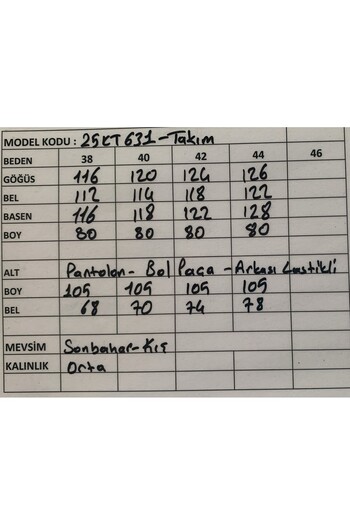 MODEL KODU : 25KT631-Takım
BEDEN 38 40 42 44 46
GÖĞÜS 116 120 124 126
BEL 112 114 118 122
BASEN 116 118 122 128
BOY 80 80 80 80
ALT Pantolon- Bol Paça - Arkası Lastikli
BOY 105 105 105 105
BEL 68 70 74 78
MEVSİM Sonbahar-Kış
KALINLIK Orta